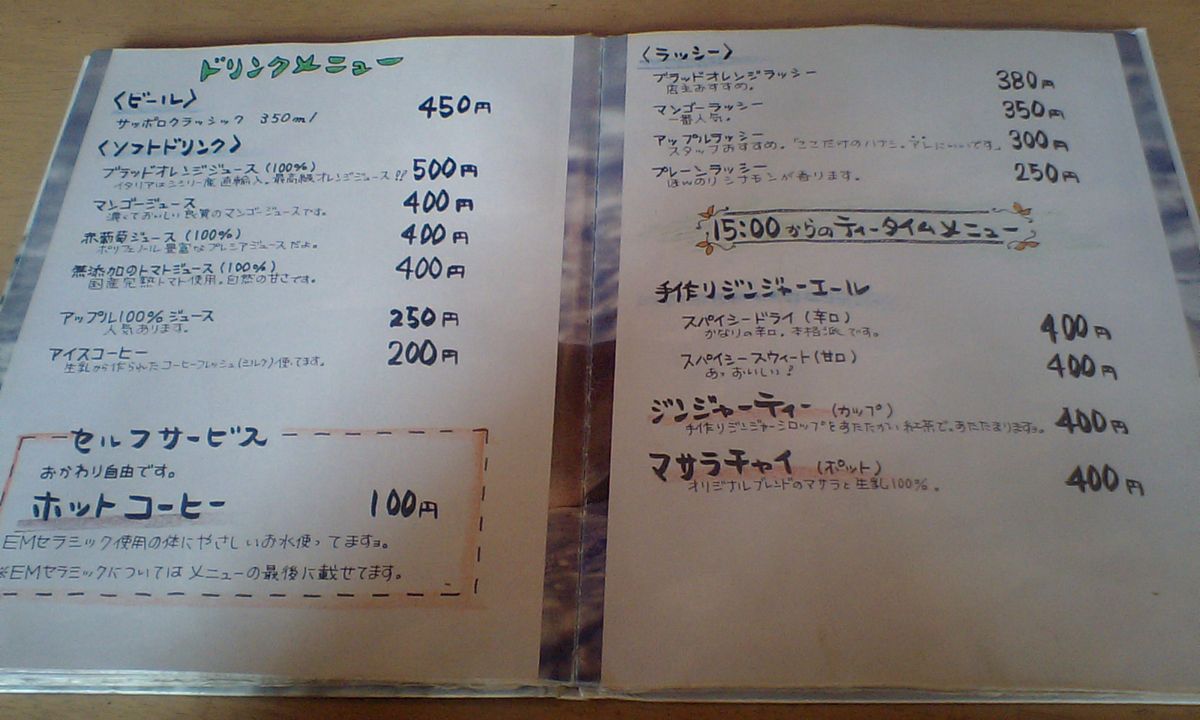 ドリンクメニュー
〈ビール〉
サッポロクラシック 350ml 450円
〈ソフトドリンク〉
ブラッドオレンジジュース(100%) 500円
イタリアはシシリー産直輸入。最高級オレンジジュース!!
マンゴージュース 400円
濃くておいしい良質のマンゴージュースです。
赤葡萄ジュース(100%) 400円
ポリフェノール豊富なプレミアジュースだよ。
無添加のトマトジュース(100%) 400円
国産完熟トマト使用。自然の甘さです。
アップル100%ジュース 250円
人気あります。
アイスコーヒー 200円
生乳から作られたコーヒーフレッシュ(ミルク)使てます。
セルフサービス
おかわり自由です。
ホットコーヒー 100円
EMセラミック使用の体にやさしいお水使ってますョ。
※EMセラミックについてはメニューの最後に載せてます。
〈ラッシー〉
ブラッドオレンジラッシー 380円
店主おすすめ。
マンゴーラッシー 350円
一番人気。
アップルラッシー 300円
スタッフおすすめ。「ここだけのハナシ。アレにいいです」
プレーンラッシー 250円
ほんのりシナモンが香ります。
15:00からのティータイムメニュー
手作りジンジャーエール
スパイシードライ(辛口) 400円
かなりの辛口。本格派です。
スパイシースウィート(甘口) 400円
あっおいしい!
ジンジャーティー(カップ) 400円
手作りジンジャーシロップをあたたかい紅茶で。あたたまりますョ。
マサラチャイ(ポット) 400円
オリジナルブレンドのマサラと生乳100%。